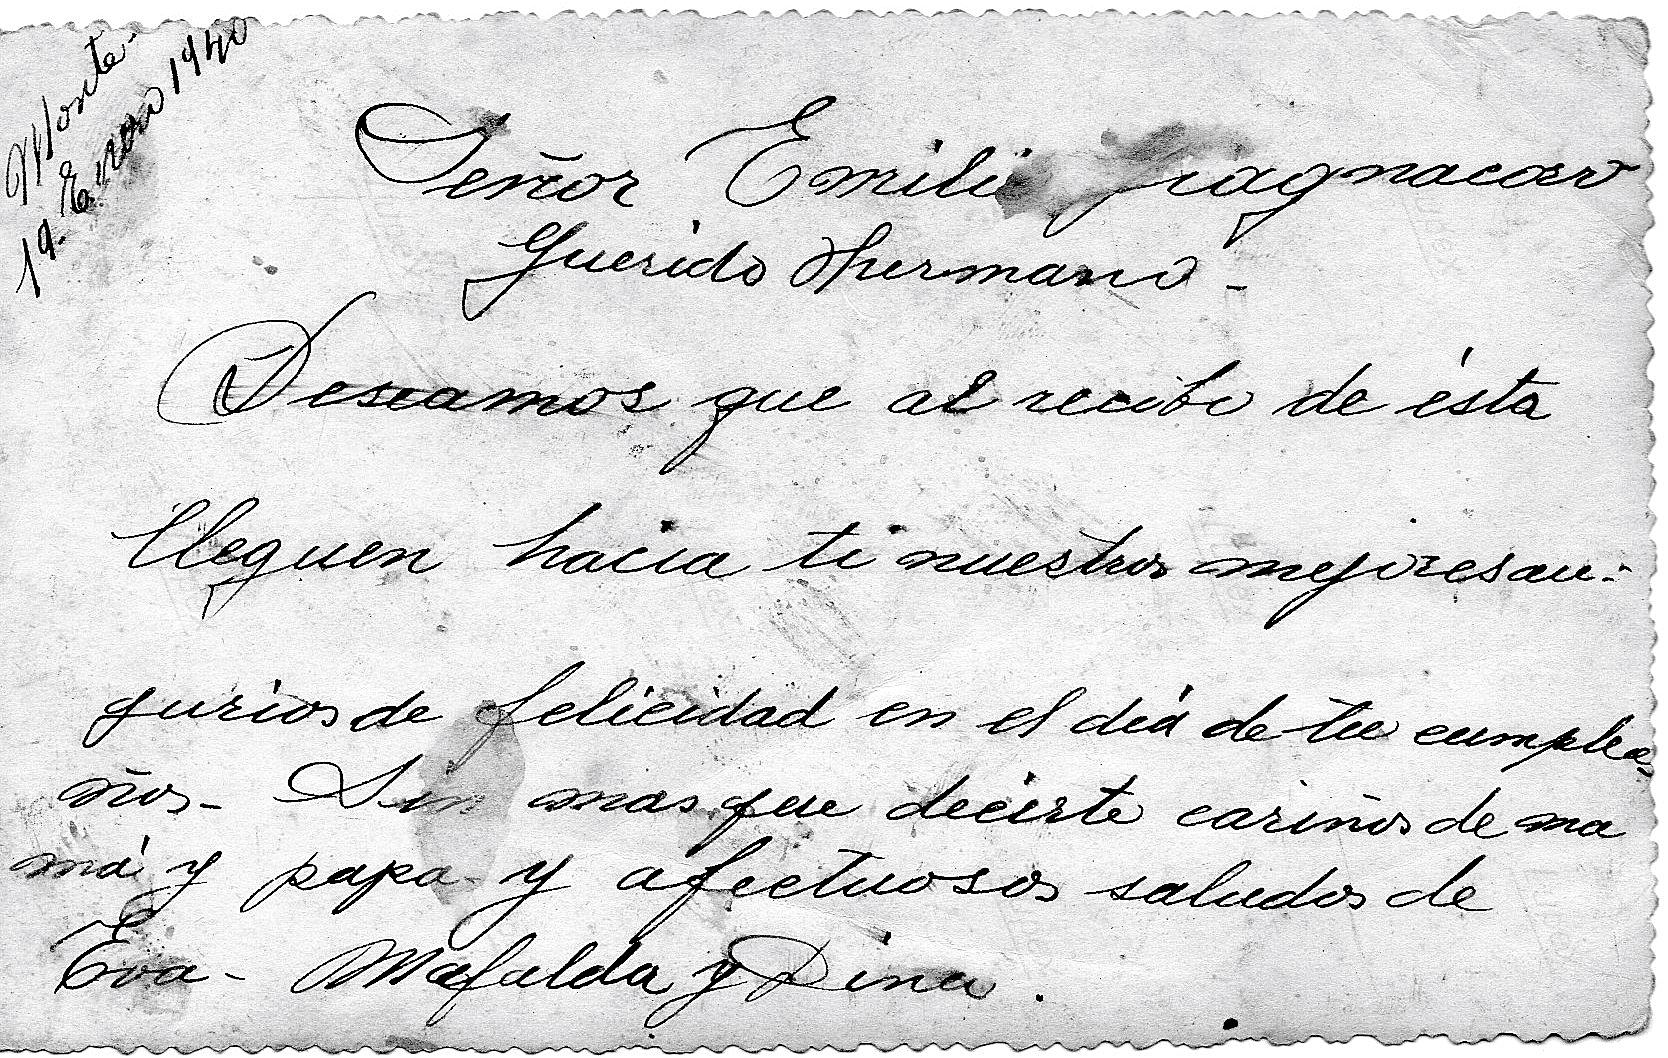 Monte-
19. Enero 1940
Señor Emilio
Querido Hermano-
Deseamos que al recibo de ésta
lleguen hacia ti nuestros mejores au-
gurios de felicidad en el día de tu cumplea-
ños- Sin mas que decirte cariños de ma
má y papa y afectuosos saludos de
Eva- Mafalda y Dina.